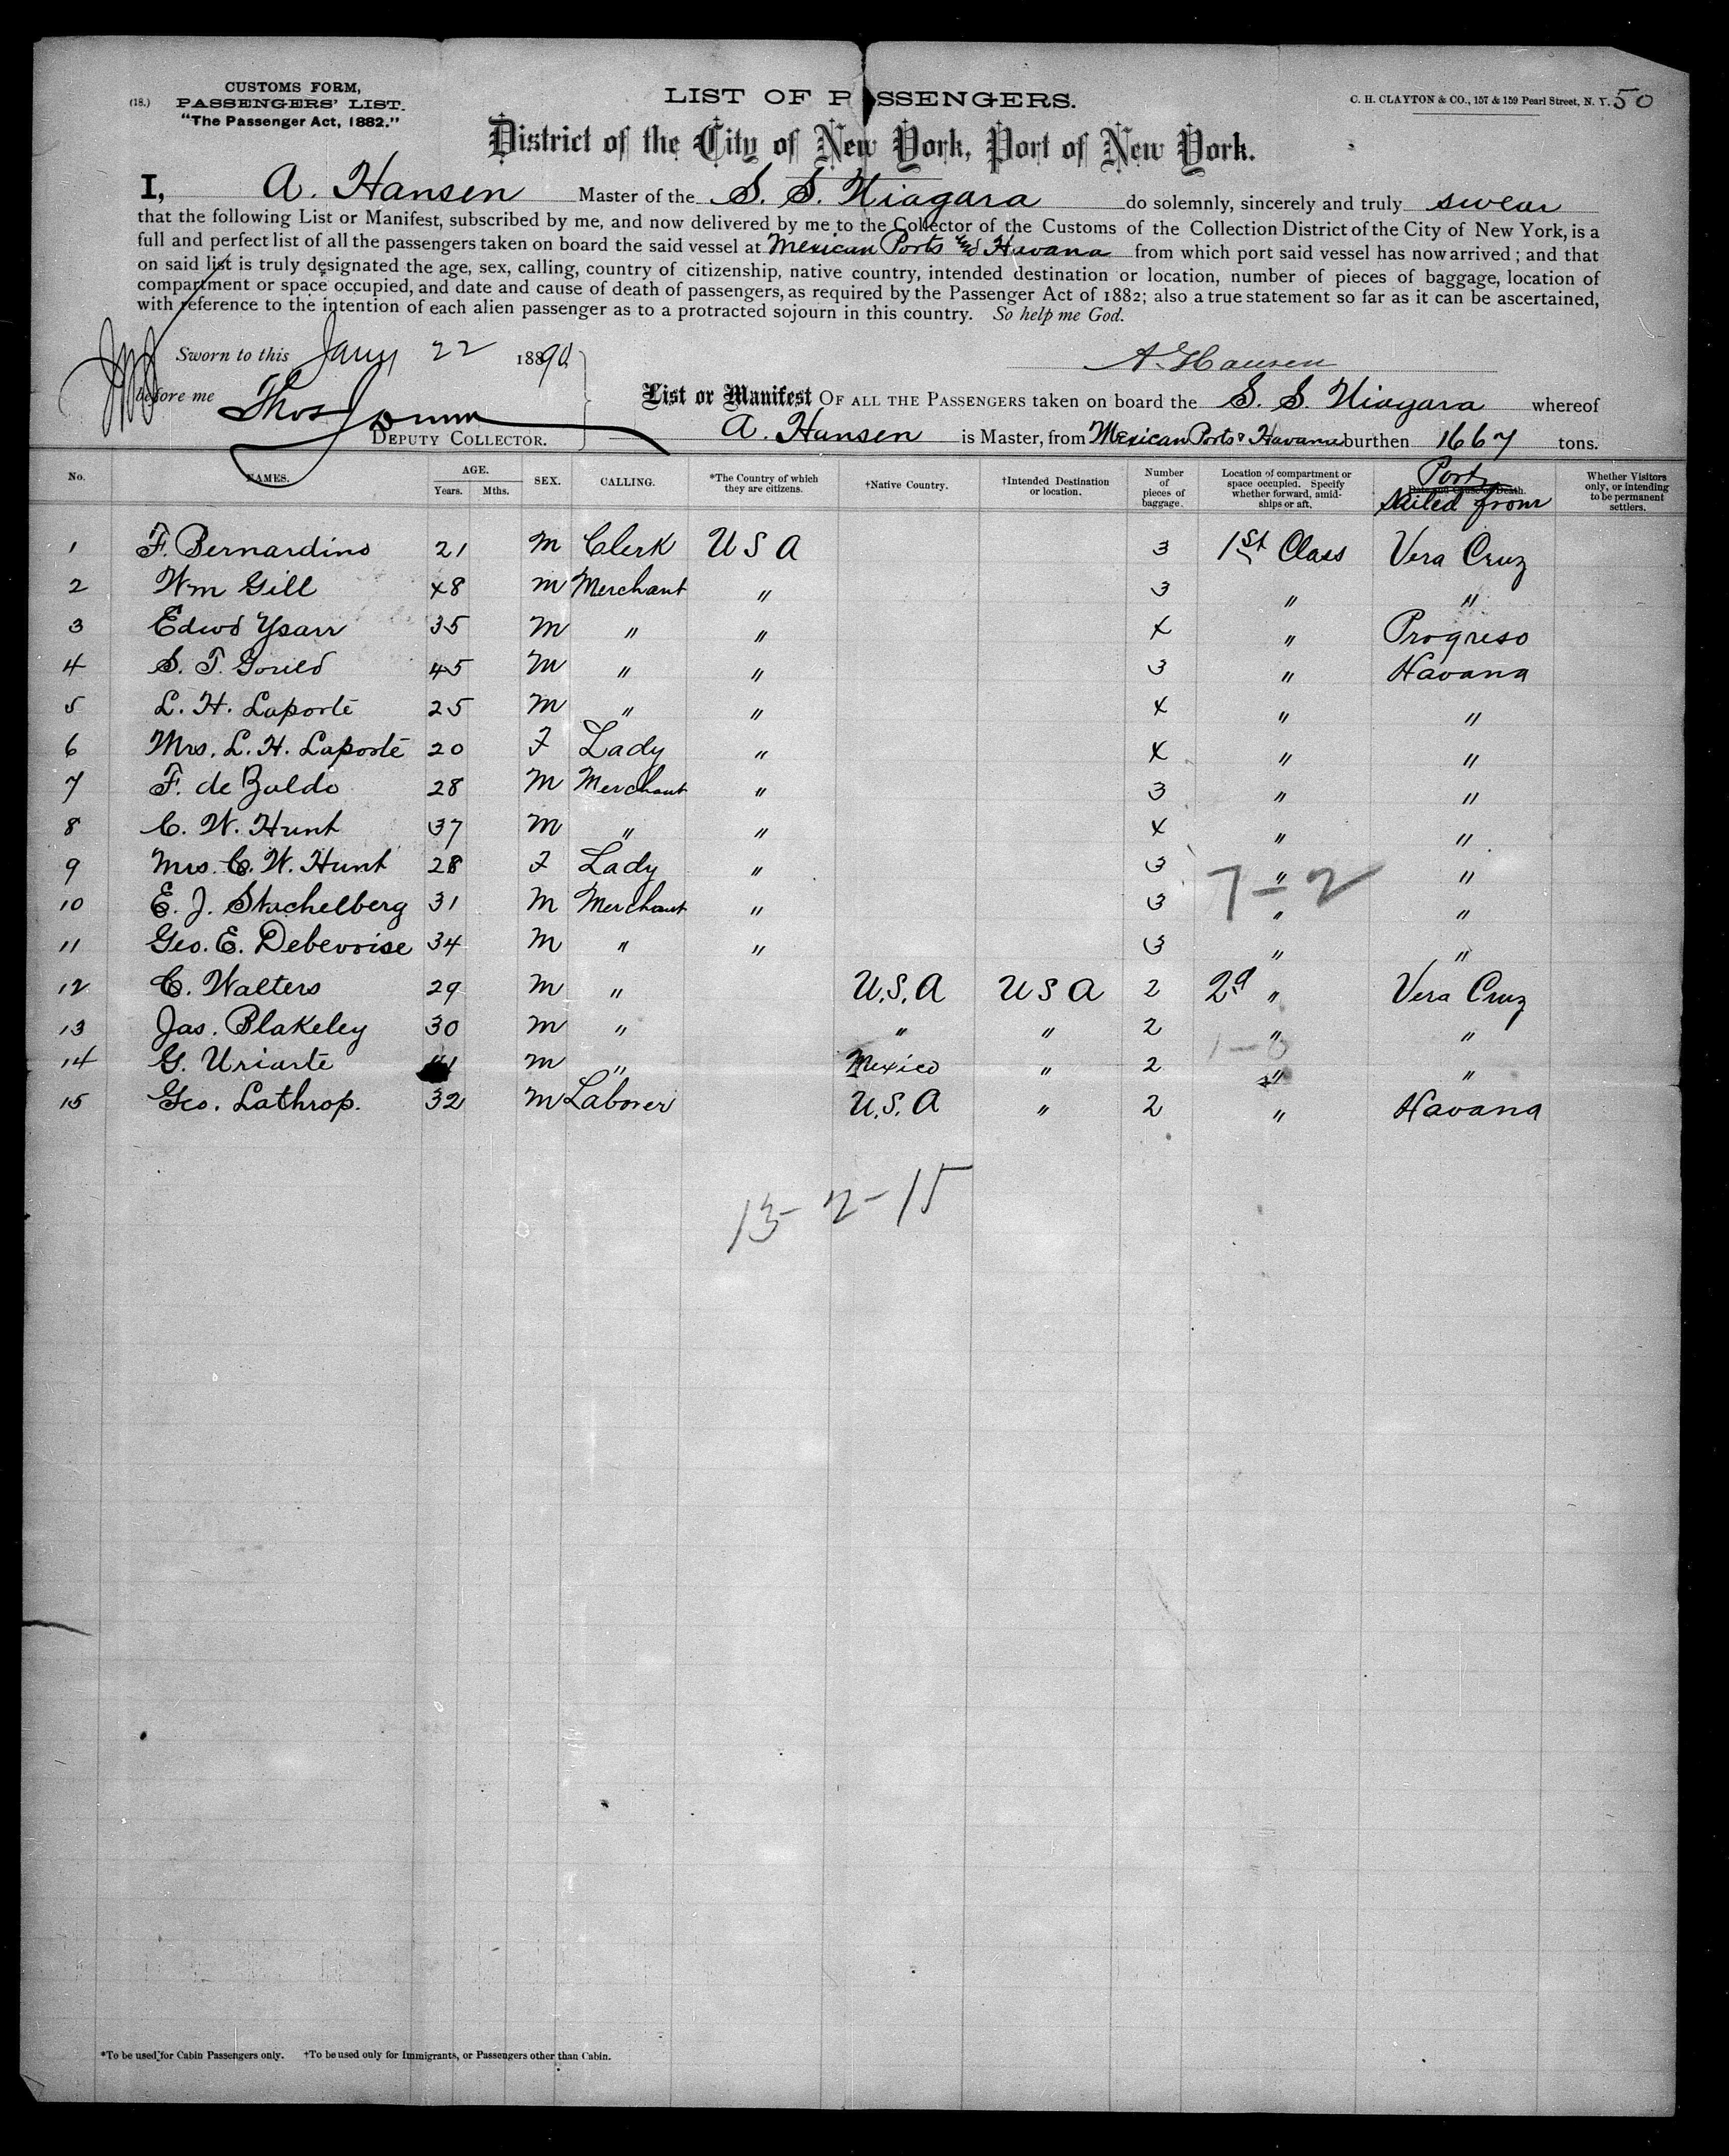 CUSTOMS FORM,
(18.) PASSENGERS' LIST.
"The Passenger Act, 1882."
LIST OF P SSENGERS.
C. H. CLAYTON & CO., 157 & 159 Pearl Street, N. Y. 50
District of the City of New York, Port of New York.
I, A. Hansen Master of the S. S. Niagara do solemnly, sincerely and truly swear
that the following List or Manifest, subscribed by me, and now delivered by me to the Collector of the Customs of the Collection District of the City of New York, is a
full and perfect list of all the passengers taken on board the said vessel at Mexican Ports and Havana from which port said vessel has now arrived; and that
on said list is truly designated the age, sex, calling, country of citizenship, native country, intended destination or location, number of pieces of baggage, location of
compartment or space occupied, and date and cause of death of passengers, as required by the Passenger Act of 1882; also a true statement so far as it can be ascertained,
with reference to the intention of each alien passenger as to a protracted sojourn in this country. So help me God.
Sworn to this Jany 22 1890
A. Hansen
before me Thos
DEPUTY COLLECTOR.
List or Manifest OF ALL THE PASSENGERS taken on board the S. S. Niagara whereof
A. Hansen is Master, from Mexican Ports & Havana burthen 1667 tons.
No. NAMES. AGE. Years. Mths. SEX. CALLING. *The Country of which they are citizens. †Native Country. †Intended Destination or location. Number of pieces of baggage. Location of compartment or space occupied. Specify whether forward, amidships or aft. Date and Cause of Death. Port Sailed from Whether Visitors only, or intending to be permanent settlers.
1 F. Bernardino 21 M Clerk U S A 3 1st Class Vera Cruz
2 Wm Gill 48 M Merchant " 3 " "
3 Edwd Ysarr 35 M " " 4 " Progreso
4 S. T. Gould 45 M " " 3 " Havana
5 L. H. Laporte 25 M " " 4 " "
6 Mrs. L. H. Laporte 20 F Lady " 4 " "
7 F. de Zaldo 28 M Merchant " 3 " "
8 C. W. Hunt 37 M " " 4 " "
9 Mrs. C. W. Hunt 28 F Lady " 3 " "
7-2
10 E. J. Stachelberg 31 M Merchant " 3 " "
11 Geo. E. Debevoise 34 M " " 3 " "
12 C. Walters 29 M " U.S.A U S A 2 2d " Vera Cruz
13 Jas. Blakeley 30 M " " " 2 " "
1-0
14 G. Uriarte M " Mexico " 2 " "
15 Geo. Lathrop. 32 M Laborer U.S.A " 2 " Havana
13-2-15
*To be used for Cabin Passengers only. †To be used only for Immigrants, or Passengers other than Cabin.